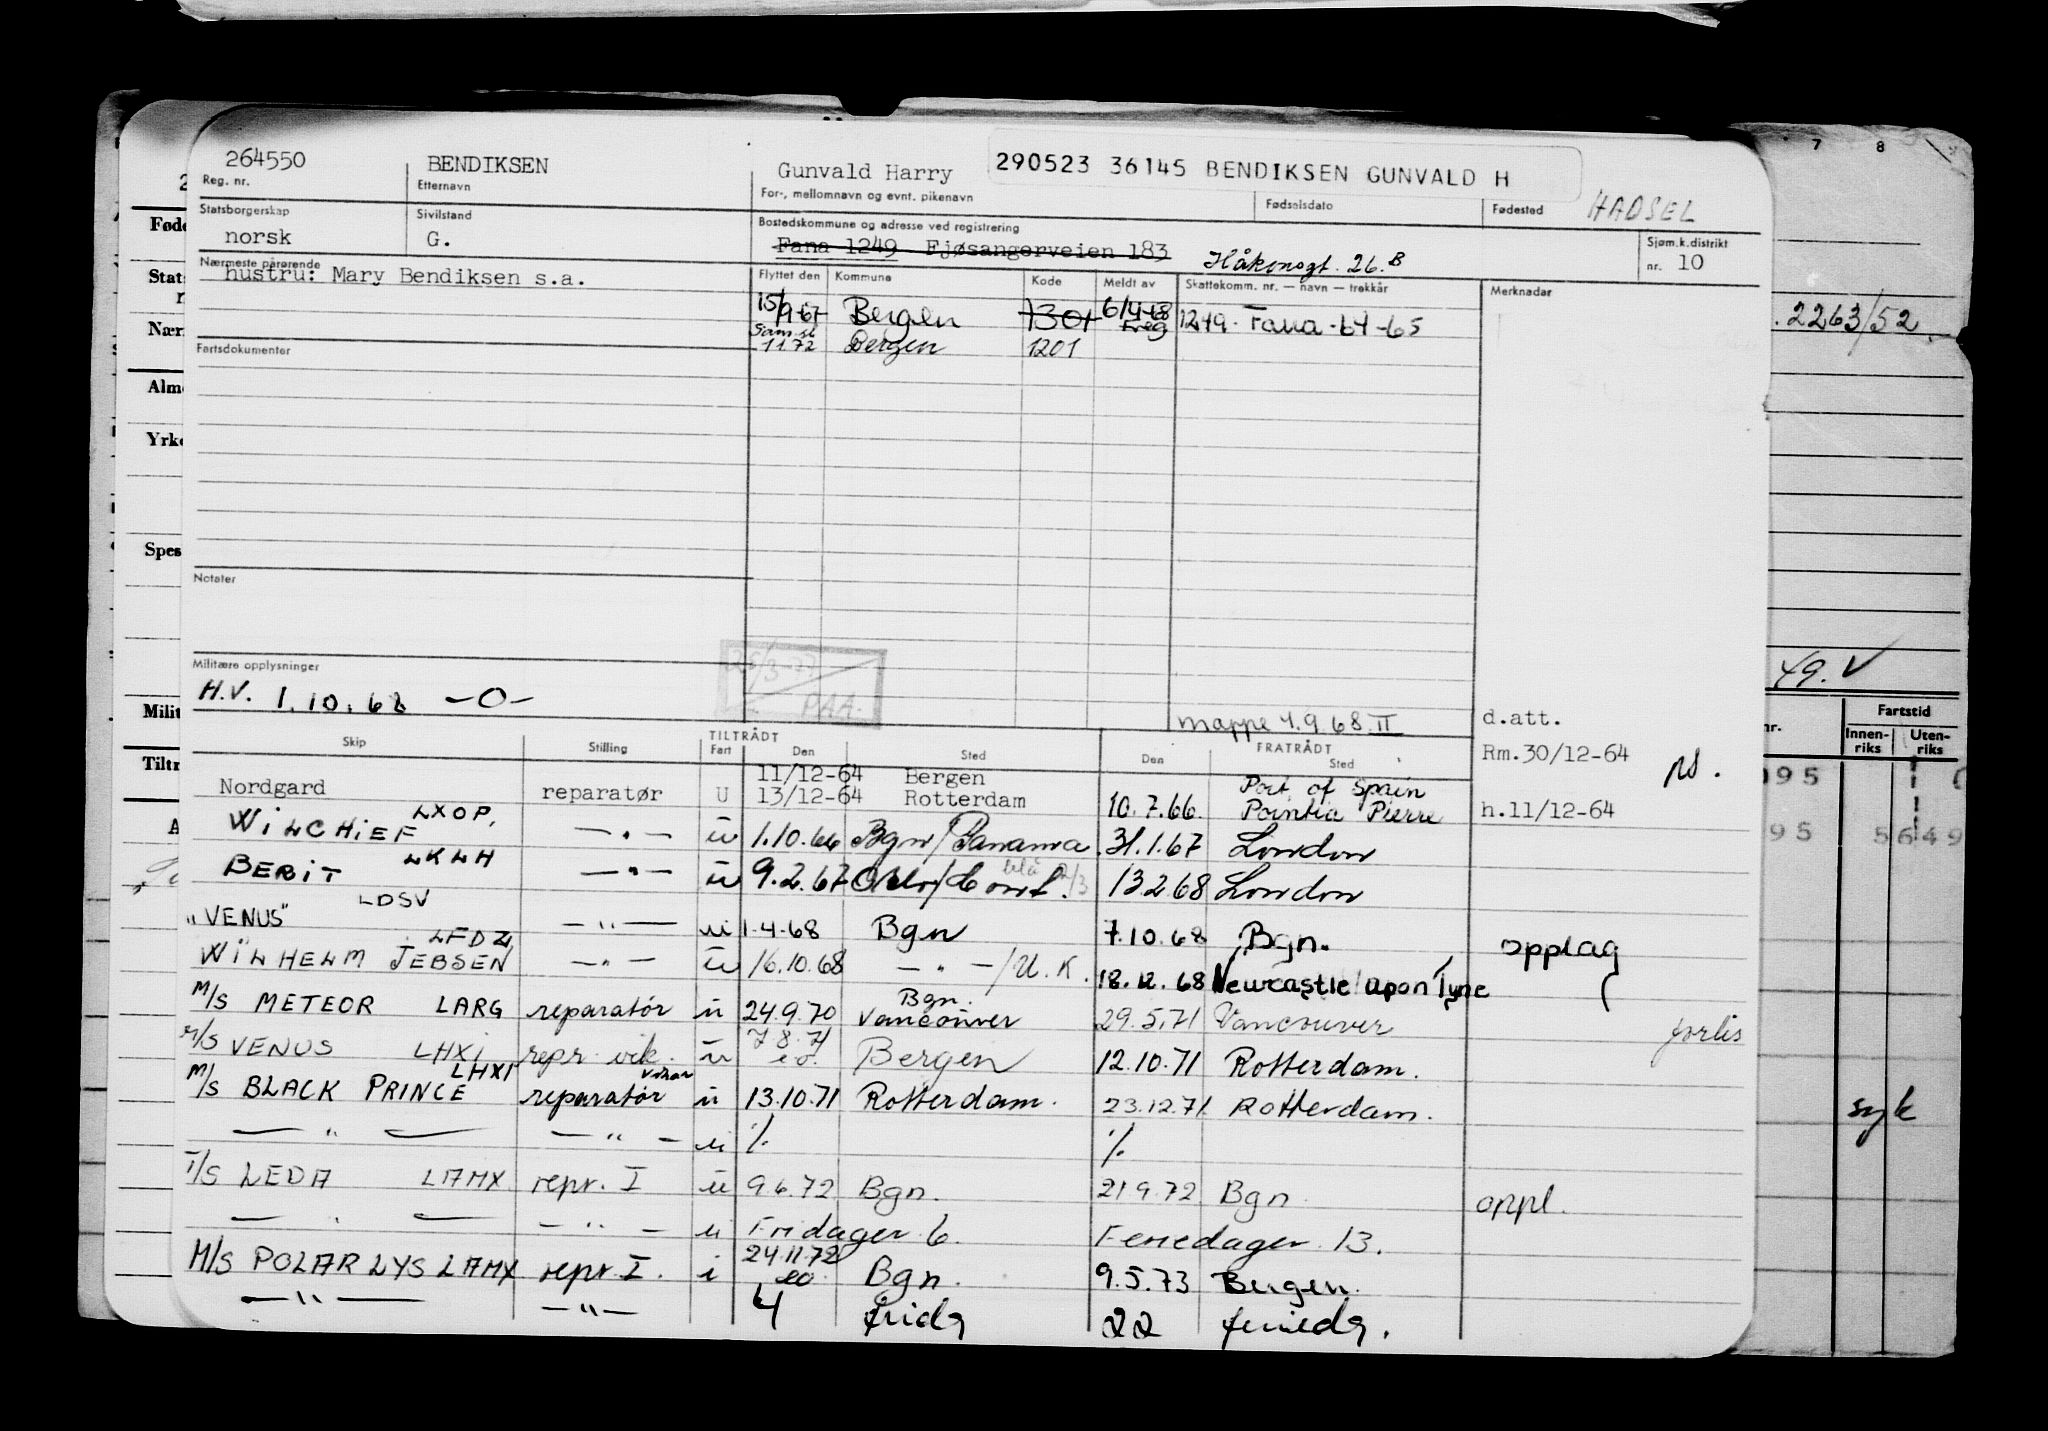 264550 BENDIKSEN Gunvald Harry 290523 36145 BENDIKSEN GUNVALD H
Reg. nr. Etternavn For-, mellomnavn og evnt. pikenavn Fødselsdato Fødested HADSEL
Statsborgerskap Sivilstand Bostedskommune og adresse ved registrering Sjøm.k.distrikt
norsk G. Fana 1249 Fjøsangerveien 183 Håkonsgt. 26.B nr. 10
Nærmeste pårørende Flyttet den Kommune Kode Meldt av Skattekomm. nr. — navn — trekkår Merknader
hustru: Mary Bendiksen s.a.
15/9-67 Bergen 1301 6/4-68 1249. Fana -64-65
Freg
1172 Bergen 1201
Fartsdokumenter
Notater
Militære opplysninger
H.V. 1.10.68 -O-
25/3-77
PAA.
mappe 4.9.68 II
d.att.
Skip Stilling TILTRÅDT Fart Den Sted FRATRÅDT Den Sted
Rm.30/12-64
11/12-64 Bergen Port of Spain
Nordgard reparatør U 13/12-64 Rotterdam 10.7.66. Pointia Pierre h.11/12-64
WILCHIEF LXOP, — " — u 1.10.66 Bgn/Panama 31.1.67 London
BERIT LKLH — " — u 9.2.67 Oslo/Cont. blå 2/3 13.2.68 London
"VENUS" LDSV — " — u 1.4.68 Bgn 7.10.68 Bgn. opplag
WILHELM JEBSEN LFDZ, — " — u 16.10.68 — " —/U.K. 18.12.68 Newcastle upon Tyne
M/S METEOR LARG reparatør u 24.9.70 Bgn. Vancouver 29.5.71 Vancouver forlis
M/S VENUS LHXI repr. vik. u 7.8.71 e.o. Bergen 12.10.71 Rotterdam.
M/S BLACK PRINCE LHXI reparatør vikar u 13.10.71 Rotterdam. 23.12.71. Rotterdam.
— " — — " — u % %
T/S LEDA LAMX repr. I u 9.6.72 Bgn. 21.9.72 Bgn. oppl.
— " — — " — u Fridager 6. Feriedager 13.
M/S POLARLYS LAMX repr. I. i 24.11.72 eo. Bgn. 9.5.73 Bergen.
— " — — " — 4 fridg 22 feriedg.
7 8
Føde
Stat
Nær
Alm
Yrke
Spes
Milit
Tiltr
. 2263/52
49. V
nr. Fartstid
Innen-riks Uten-riks
95
95 5649
syk